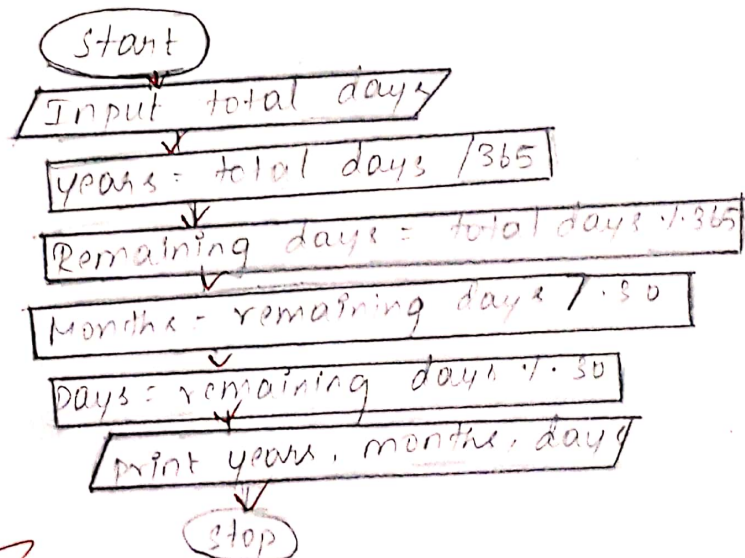 Start
Input total days
years = total days /365
Remaining days = total days %365
Months = remaining days /.30
Days = remaining days %.30
print years, months, days
stop